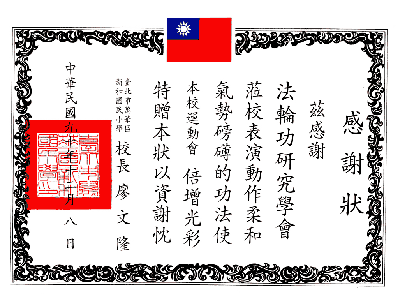 感謝狀
茲感謝
法輪功研究學會
蒞校表演動作柔和
氣勢磅礡的功法使
本校運動會 倍增光彩
特贈本狀以資謝忱
臺北市萬華區
新和國民小學
校長 廖文隆
中華民國九
月八日